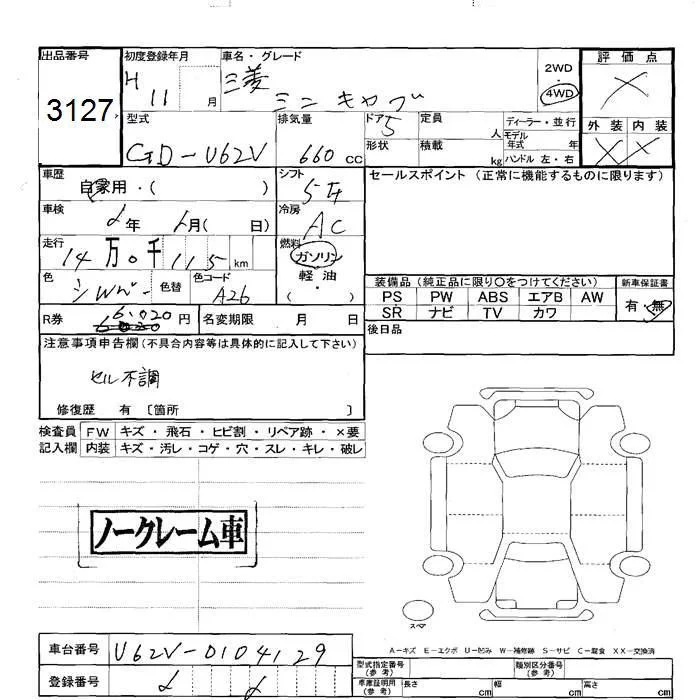 出品番号
3127
初度登録年月
H 11 月
車名・グレード
三菱
ミニキャブ
2WD
4WD
評価点
外装 内装
型式
GD-U62V
排気量
660 CC
ドア 5
形状
定員 人
積載 kg
ディーラー・並行
モデル年式 年
ハンドル 左・右
車歴
自家用・( )
シフト
5F
セールスポイント (正常に機能するものに限ります)
車検
年 月( 日)
冷房
AC
走行
14万0千115km
燃料
ガソリン・
軽油
( )
色
シルバー
色替
色コード
A26
装備品 (純正品に限り○をつけてください)
PS PW ABS エアB AW
SR ナビ TV カワ
新車保証書
有・無
R券 6.020 円
名変期限 月 日
後日品
注意事項申告欄(不具合内容等は具体的に記入して下さい)
セル不調
修復歴 有 〔箇所 〕
検査員記入欄
FW キズ・飛石・ヒビ割・リペア跡・×要
内装 キズ・汚レ・コゲ・穴・スレ・キレ・破レ
ノークレーム車
スペア
A-キズ E-エクボ U-凹み W-補修跡 S-サビ C-腐食 XX-交換済
車台番号 U62V-0104129
登録番号
型式指定番号(参考)
類別区分番号(参考)
車庫証明用(参考) 長さ cm 幅 cm 高さ cm